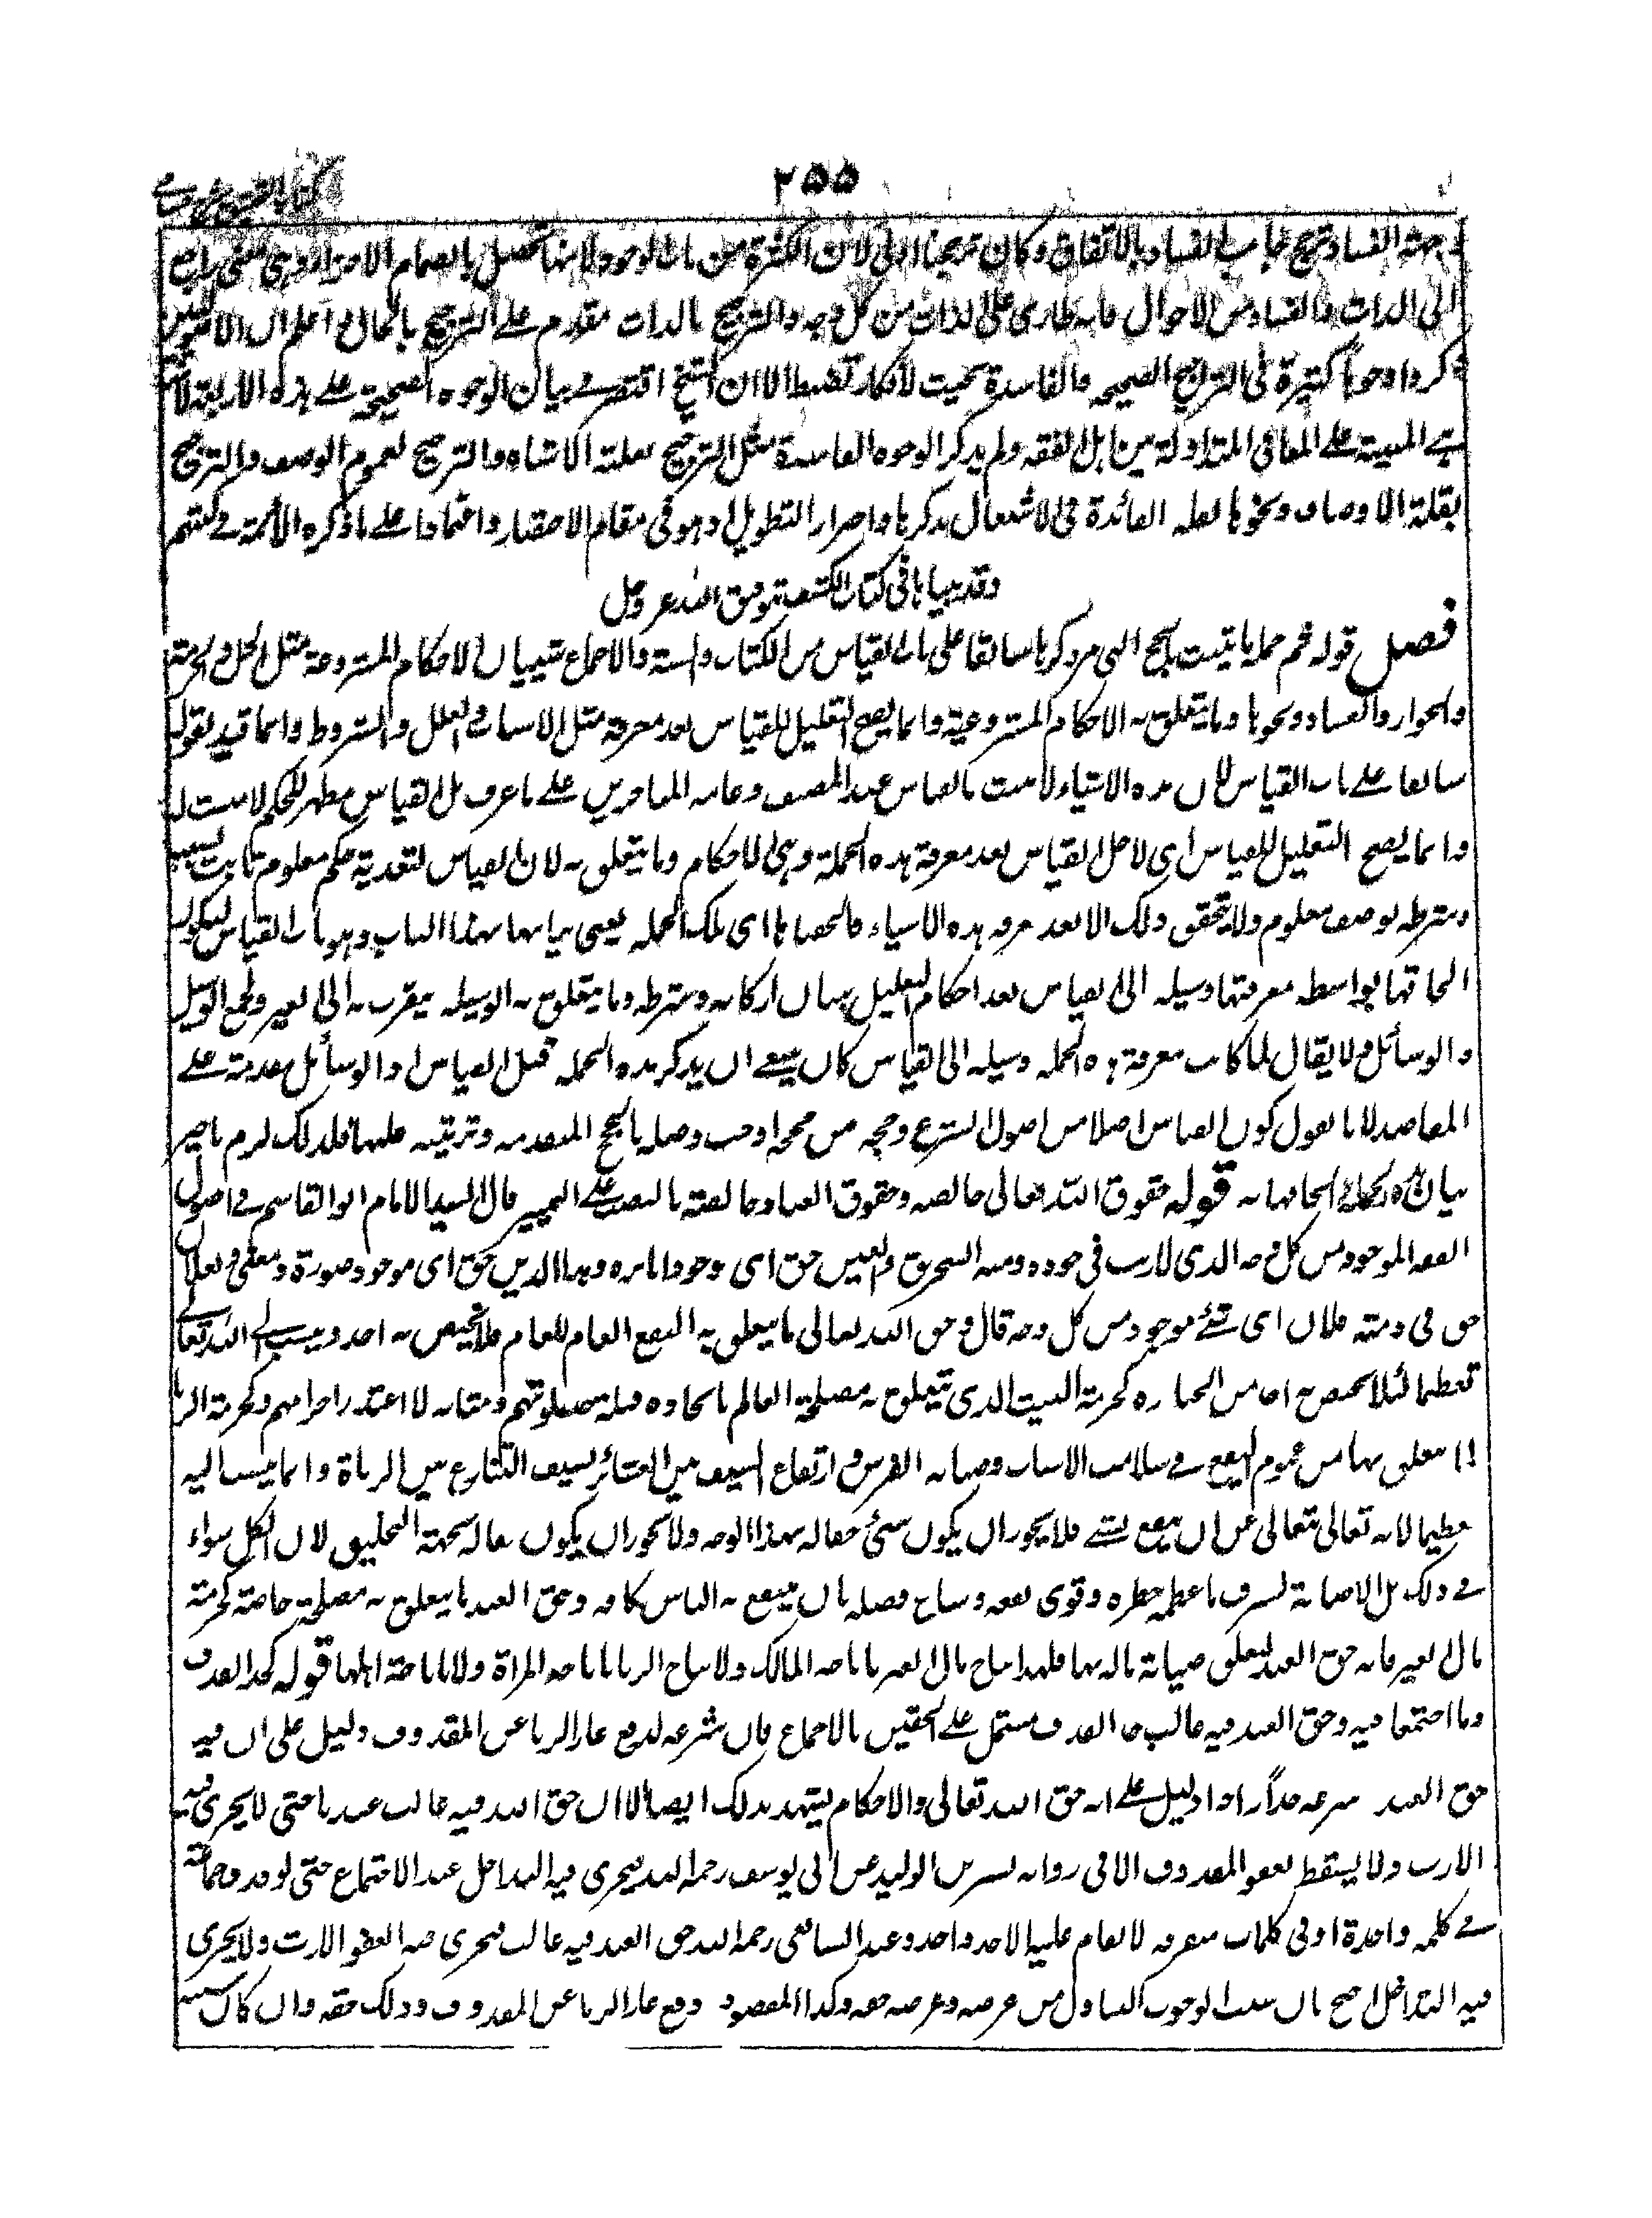 ٢٥٥
جهة الفساد ترجيح بجانب الفساد بالاتفاق وكان ترجيحنا اولى لان الكثرة من باب الوجود لانها تحصل بانضمام الاجزاء
الى الذات والفساد من الاحوال فانه طارى على الذات من كل وجه والترجيح بالذات مقدم على الترجيح بالحال اعلم ان الاصوليين
ذكروا وجوها كثيرة فى التراجيح الصحيحة والفاسدة بحيث لا تكاد تضبط الا ان الشيخ اقتصر فے بيان الوجوه الصحيحة على هذه الاربعة لانها
هے المبينة على المعانى المتداولة بين اهل الفقه ولم يذكر الوجوه الفاسدة مثل الترجيح بغلبة الاشباه والترجيح لعموم الوصف والترجيح
بقلة الاوصاف ونحوها لقلة الفائدة فى الاشتغال بذكرها واحترازا التطويل اذ هو فى مقام الاختصار واعتمادا على ما ذكره الائمة فے كتبهم
وقد بيناها فى كتاب الكشف بتوفيق الله عز وجل
فصل قوله ثم جملة ما يثبت بالحجج التى مر ذكرها سابقا على باب القياس من الكتاب والسنة والاجماع شيئان الاحكام المشروعة مثل الحل والحرمة
والجواز والفساد ونحوها وما يتعلق به الاحكام المشروعية وانما يصح التعليل للقياس بعد معرفة مثل الاسباب والعلل والشروط وانما قيد بقوله
سابقا على باب القياس لان هذه الاشياء لا تثبت بالقياس عند المصنف وعامة المتاخرين على ما عرف بل القياس مظهر للحكم لا مثبت له
وانما يصح التعليل للقياس اى لاجل القياس بعد معرفة هذه الجملة وهى الاحكام وما يتعلق به لان القياس لتعدية حكم معلوم ثابت بسببه
وشرطه بوصف معلوم ولا يتحقق ذلك الا بعد معرفة هذه الاشياء فالحقناها اى تلك الجملة يعنى بيانها بهذا الباب وهو باب القياس ليكون
الحاقها بواسطة معرفتها وسيلة الى القياس بعد احكام التعليل ببيان اركانه وشرطه وما يتعلق به الوسيلة يتقرب به الى الغير والجمع الوسيل
والوسائل ولا يقال لما كانت معرفة هذه الجملة وسيلة الى القياس كان ينبغے ان يذكر هذه الجملة قبل القياس اذ الوسائل مقدمة على
المقاصد لانا نقول كون القياس اصلا من اصول الشرع وحجة من حججه اوجب وصله بالحجج المتقدمة وترتيبه عليها فلذلك لزم تاخير
بيان هذه الجملة والحاقها به قوله حقوق الله تعالى خالصة وحقوق العباد خالصة بالنصب على التمييز قال السيد الامام ابو القاسم فے اصول
الفقه الموجود من كل وجه الذى لا ريب فى وجوده ومنه السحر حق والعين حق اى وجودا باثره وهذا الدين حق اى موجود صورة ومعنى ولفلان
حق فى ذمة فلان اى شئے موجود من كل وجه قال وحق الله تعالى ما يتعلق به النفع العام للعالم فلا يختص به احد وينسب الى الله تعالى
تعظيما لئلا يختص به احد من الجبابرة كحرمة البيت الذى يتعلق به مصلحة العالم باتخاذه قبلة لصلوتهم ومثابة لاعتذار اجرامهم وكحرمة الزنا
لما يتعلق بها من عموم النفع فے سلامت الانساب وصيانة الفرش وارتفاع السيف بين العشائر بسبب التنازع بين الزناة وانما ينسب اليه
تعظيما لانه تعالى يتعالى عن ان ينتفع بشئے فلا يجوز ان يكون شئ حقا له بهذا الوجه ولا يجوز ان يكون حقا له بجهة التخليق لان الكل سواء
فے ذلك بل الاضافة لتشرف ما عظم خطره وقوى نفعه وشاع فضله بان ينتفع به الناس كافة وحق العبد ما يتعلق به مصلحة خاصة كحرمة
مال الغير فانه حق العبد ليتعلق صيانة ماله بها فلهذا يباح مال الغير باباحة المالك ولا يباح الزنا باباحة المراة ولا باباحة اهلها قوله كحد القذف
وما اجتمعا فيه وحق العبد فيه غالب حد القذف مشتمل على الحقين بالاجماع فان شرعه لدفع عار الزنا عن المقذوف دليل على ان فيه
حق العبد شرعه حدا زاجرا دليل على انه حق الله تعالى والاحكام يشهد بذلك ايضا الا ان حق الله فيه غالب عندنا حتى لا يجرى فيه
الارث ولا يسقط بعفو المقذوف الا فى رواية بشر بن الوليد عن ابى يوسف رحمه الله ويجرى فيه التداخل عند الاجتماع حتى لو قذف جماعة
فے كلمة واحدة او فى كلمات متفرقة لا يقام عليه الا حد واحد وعند الشافعى رحمه الله حق العبد فيه غالب فيجرى فيه العفو الارث ولا يجرى
فيه التداخل احتج بان سبب الوجوب التناول من عرضه وعرضه حقه وكذا المقصود دفع عار الزنا عن المقذوف وذلك حقه وان كان